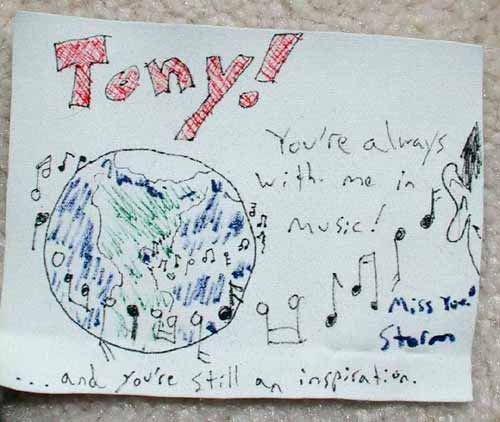 Tony!
You're always
with me in
music!
Miss You!
Storm
... and you're still an inspiration.